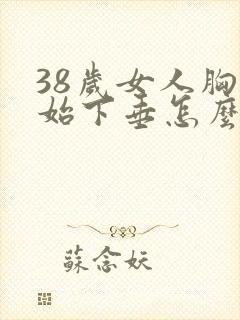 38歲女人胸
始下垂怎麼
蘇念妖